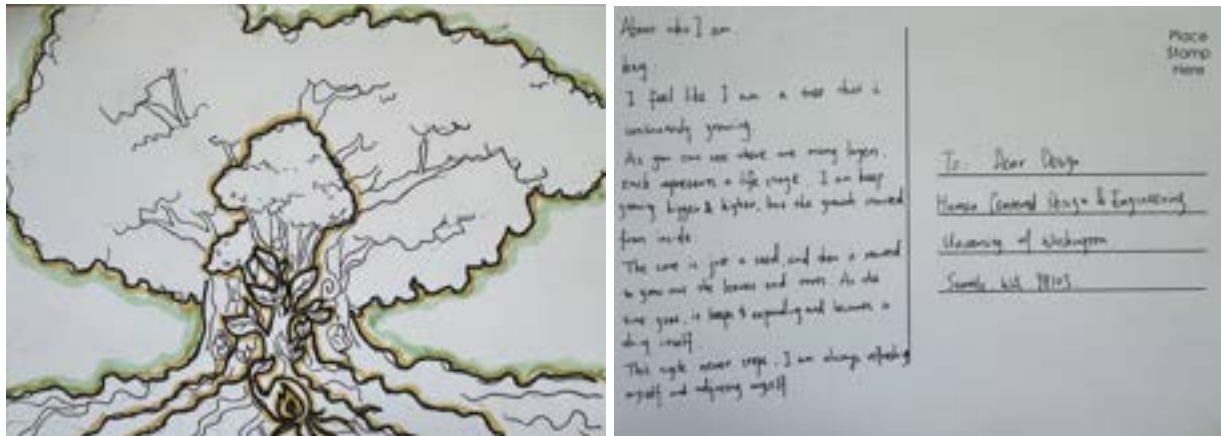 About who I am.
I feel like I am a tree that is
continuously growing.
As you can see there are many layers,
each represents a life stage. I am keep
growing bigger & higher, but the growth started
from inside.
The core is just a seed, and then it started
to grow out the leaves and roots. As the
time goes, it keeps expanding and becomes a
itself.
This cycle never stops. I am always refreshing
myself and adjusting myself
Place
Stamp
Here
To: Dear Design
Human Centered Design & Engineering
University of Washington
Seattle, WA 98105